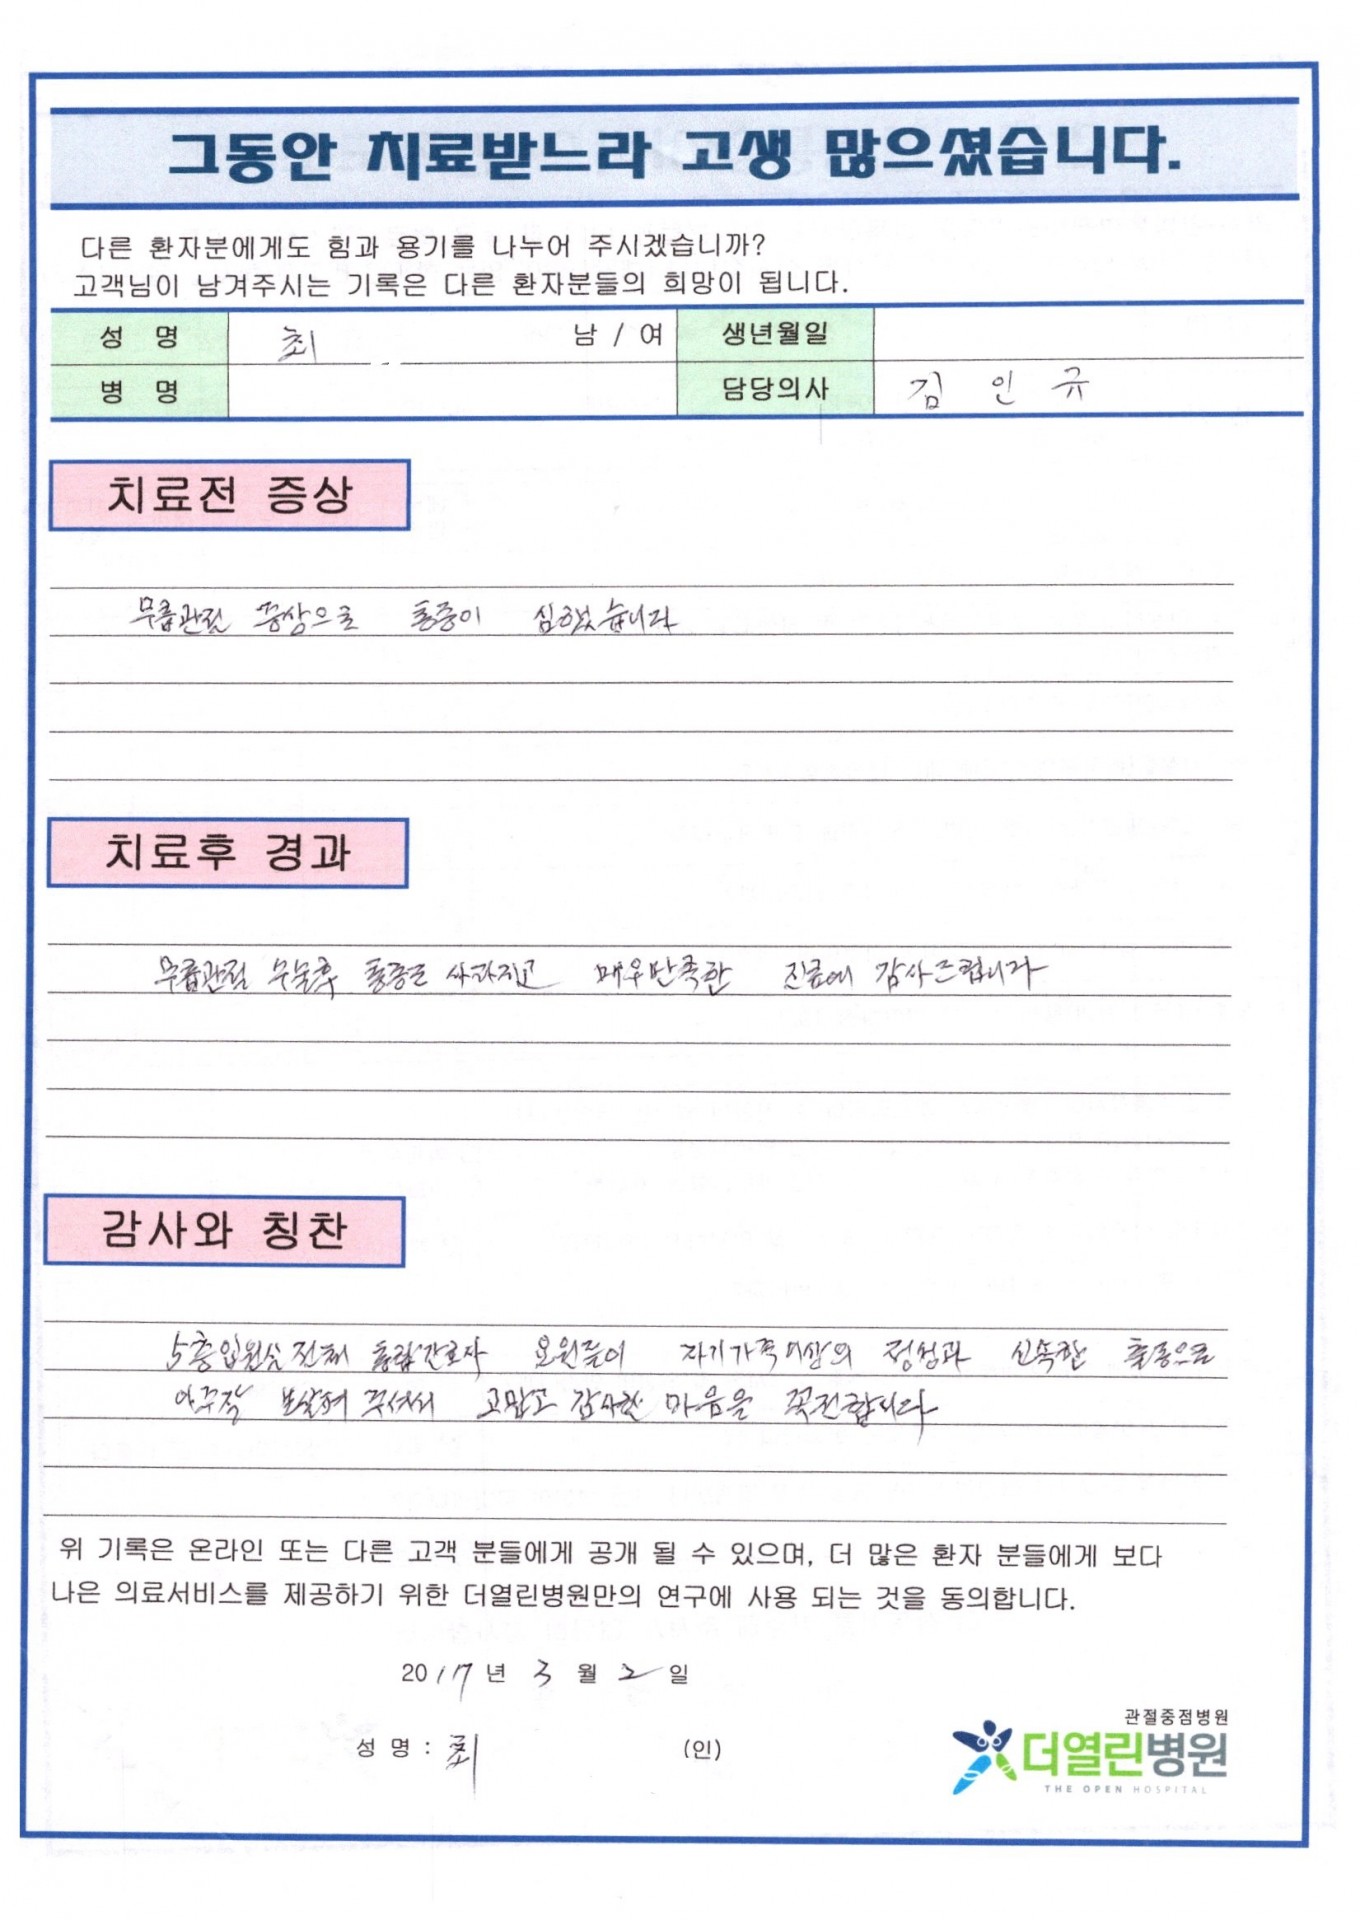 그동안 치료받느라 고생 많으셨습니다.
다른 환자분에게도 힘과 용기를 나누어 주시겠습니까?
고객님이 남겨주시는 기록은 다른 환자분들의 희망이 됩니다.
성 명 최 남 / 여 생년월일
병 명 담당의사 김 인 규
치료전 증상
무릎관절 증상으로 통증이 심했습니다
치료후 경과
무릎관절 수술후 통증도 사라지고 매우만족한 진료에 감사드립니다
감사와 칭찬
5층입원실 전체 간호사 요원들이 자기가족이상의 정성과 신속한 활동으로
보살펴 주셔서 고맙고 감사한 마음을 꼭전합니다
위 기록은 온라인 또는 다른 고객 분들에게 공개 될 수 있으며, 더 많은 환자 분들에게 보다
나은 의료서비스를 제공하기 위한 더열린병원만의 연구에 사용 되는 것을 동의합니다.
2017년 3월 2일
성 명 : 최 (인)
관절중점병원
더열린병원
THE OPEN HOSPITAL